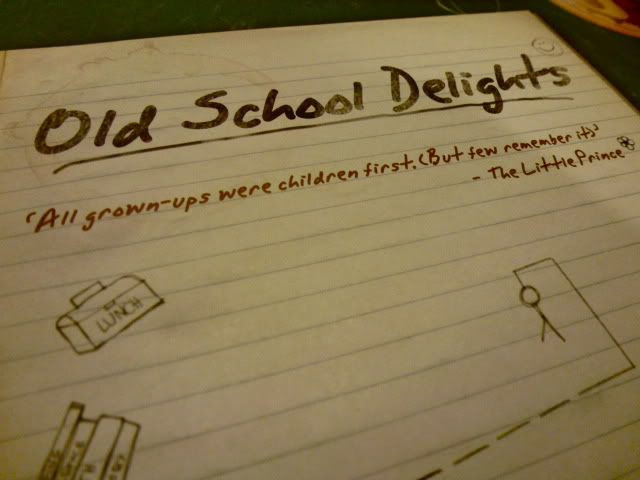 Old School Delights
'All grown-ups were children first. (But few remember it)'
- The Little Prince
LUNCH